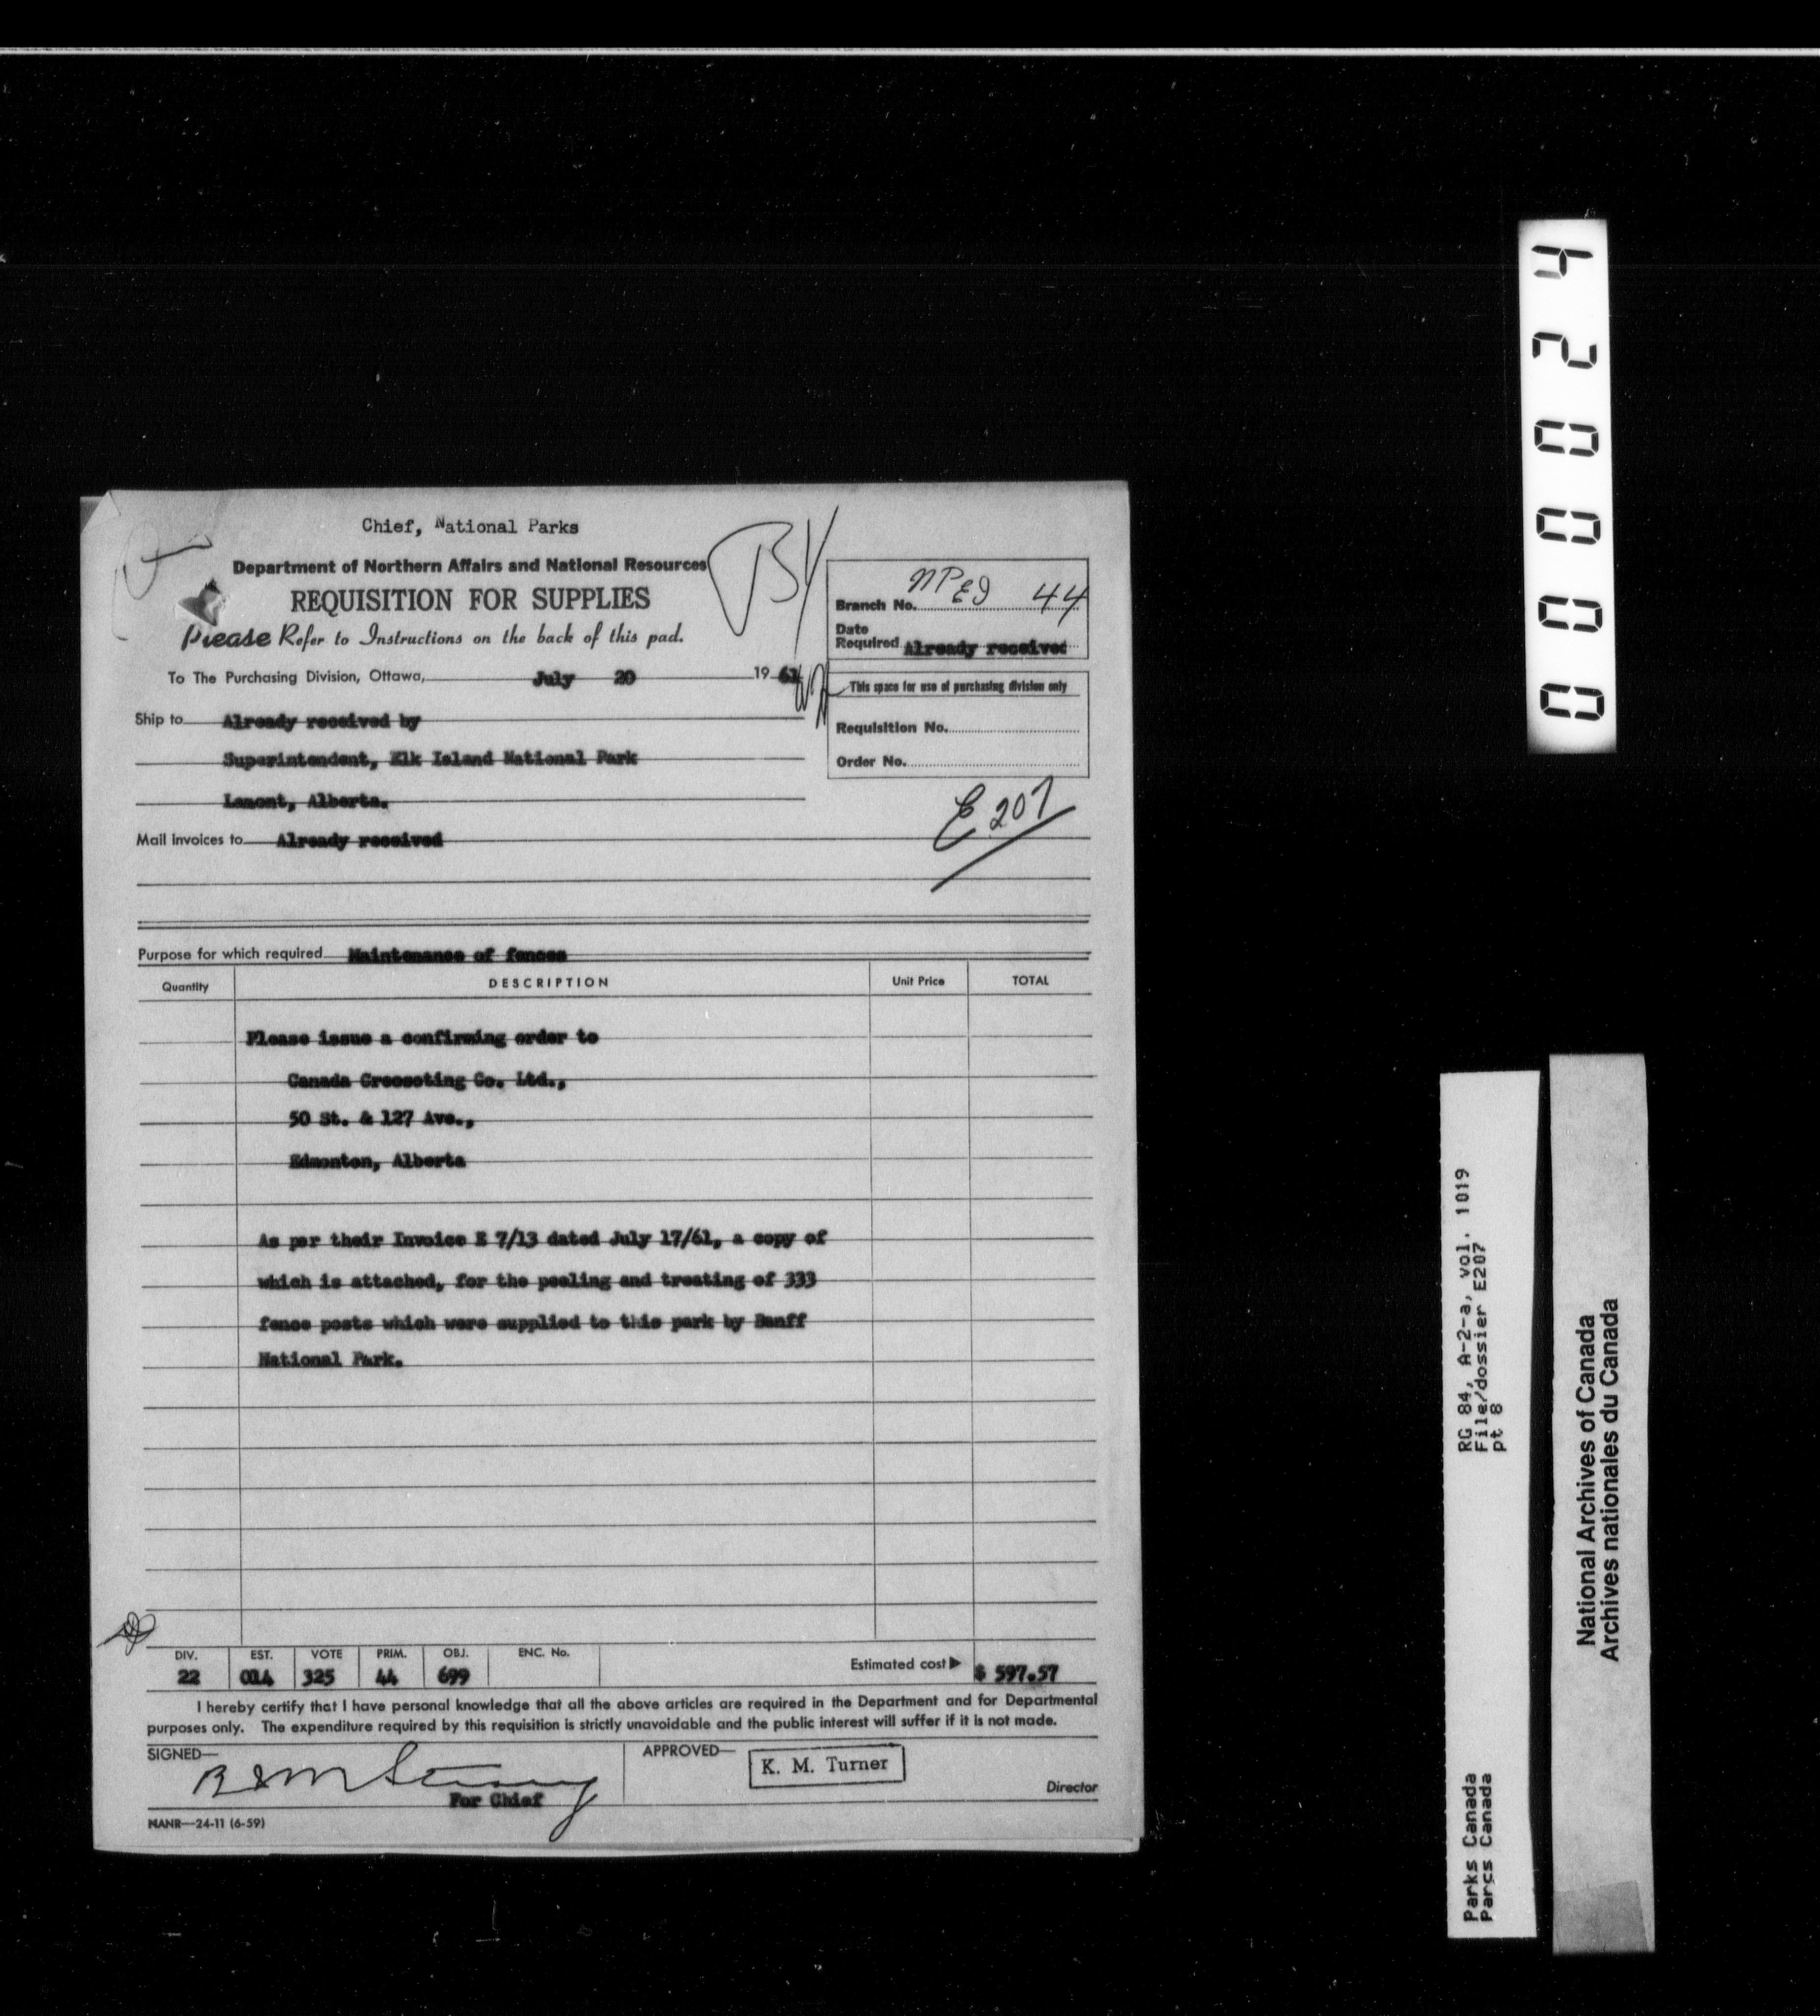 Chief, National Parks
Department of Northern Affairs and National Resources
REQUISITION FOR SUPPLIES
Please Refer to Instructions on the back of this pad.
BY
NPEI 44
Branch No.
Date
Required Already received
To The Purchasing Division, Ottawa, July 20 1961
This space for use of purchasing division only
Requisition No.
Order No.
Ship to Already received by
Superintendent, Elk Island National Park
Lamont, Alberta.
E 207
Mail Invoices to Already received
Purpose for which required Maintenance of fences
Quantity DESCRIPTION Unit Price TOTAL
Please issue a confirming order to
Canada Creosoting Co. Ltd.,
50 St. & 127 Ave.,
Edmonton, Alberta
As per their Invoice E 7/13 dated July 17/61, a copy of
which is attached, for the peeling and treating of 333
fence posts which were supplied to this park by Banff
National Park.
DIV. EST. VOTE PRIM. OBJ. ENC. No.
22 014 325 44 699
Estimated cost ▶ $ 597.57
I hereby certify that I have personal knowledge that all the above articles are required in the Department and for Departmental
purposes only. The expenditure required by this requisition is strictly unavoidable and the public interest will suffer if it is not made.
SIGNED—
For Chief
APPROVED—
K. M. Turner
Director
NANR—24-11 (6-59)
000024
RG 84, A-2-a, vol. 1019
File/dossier E207
pt 8
Parks Canada
Parcs Canada
National Archives of Canada
Archives nationales du Canada